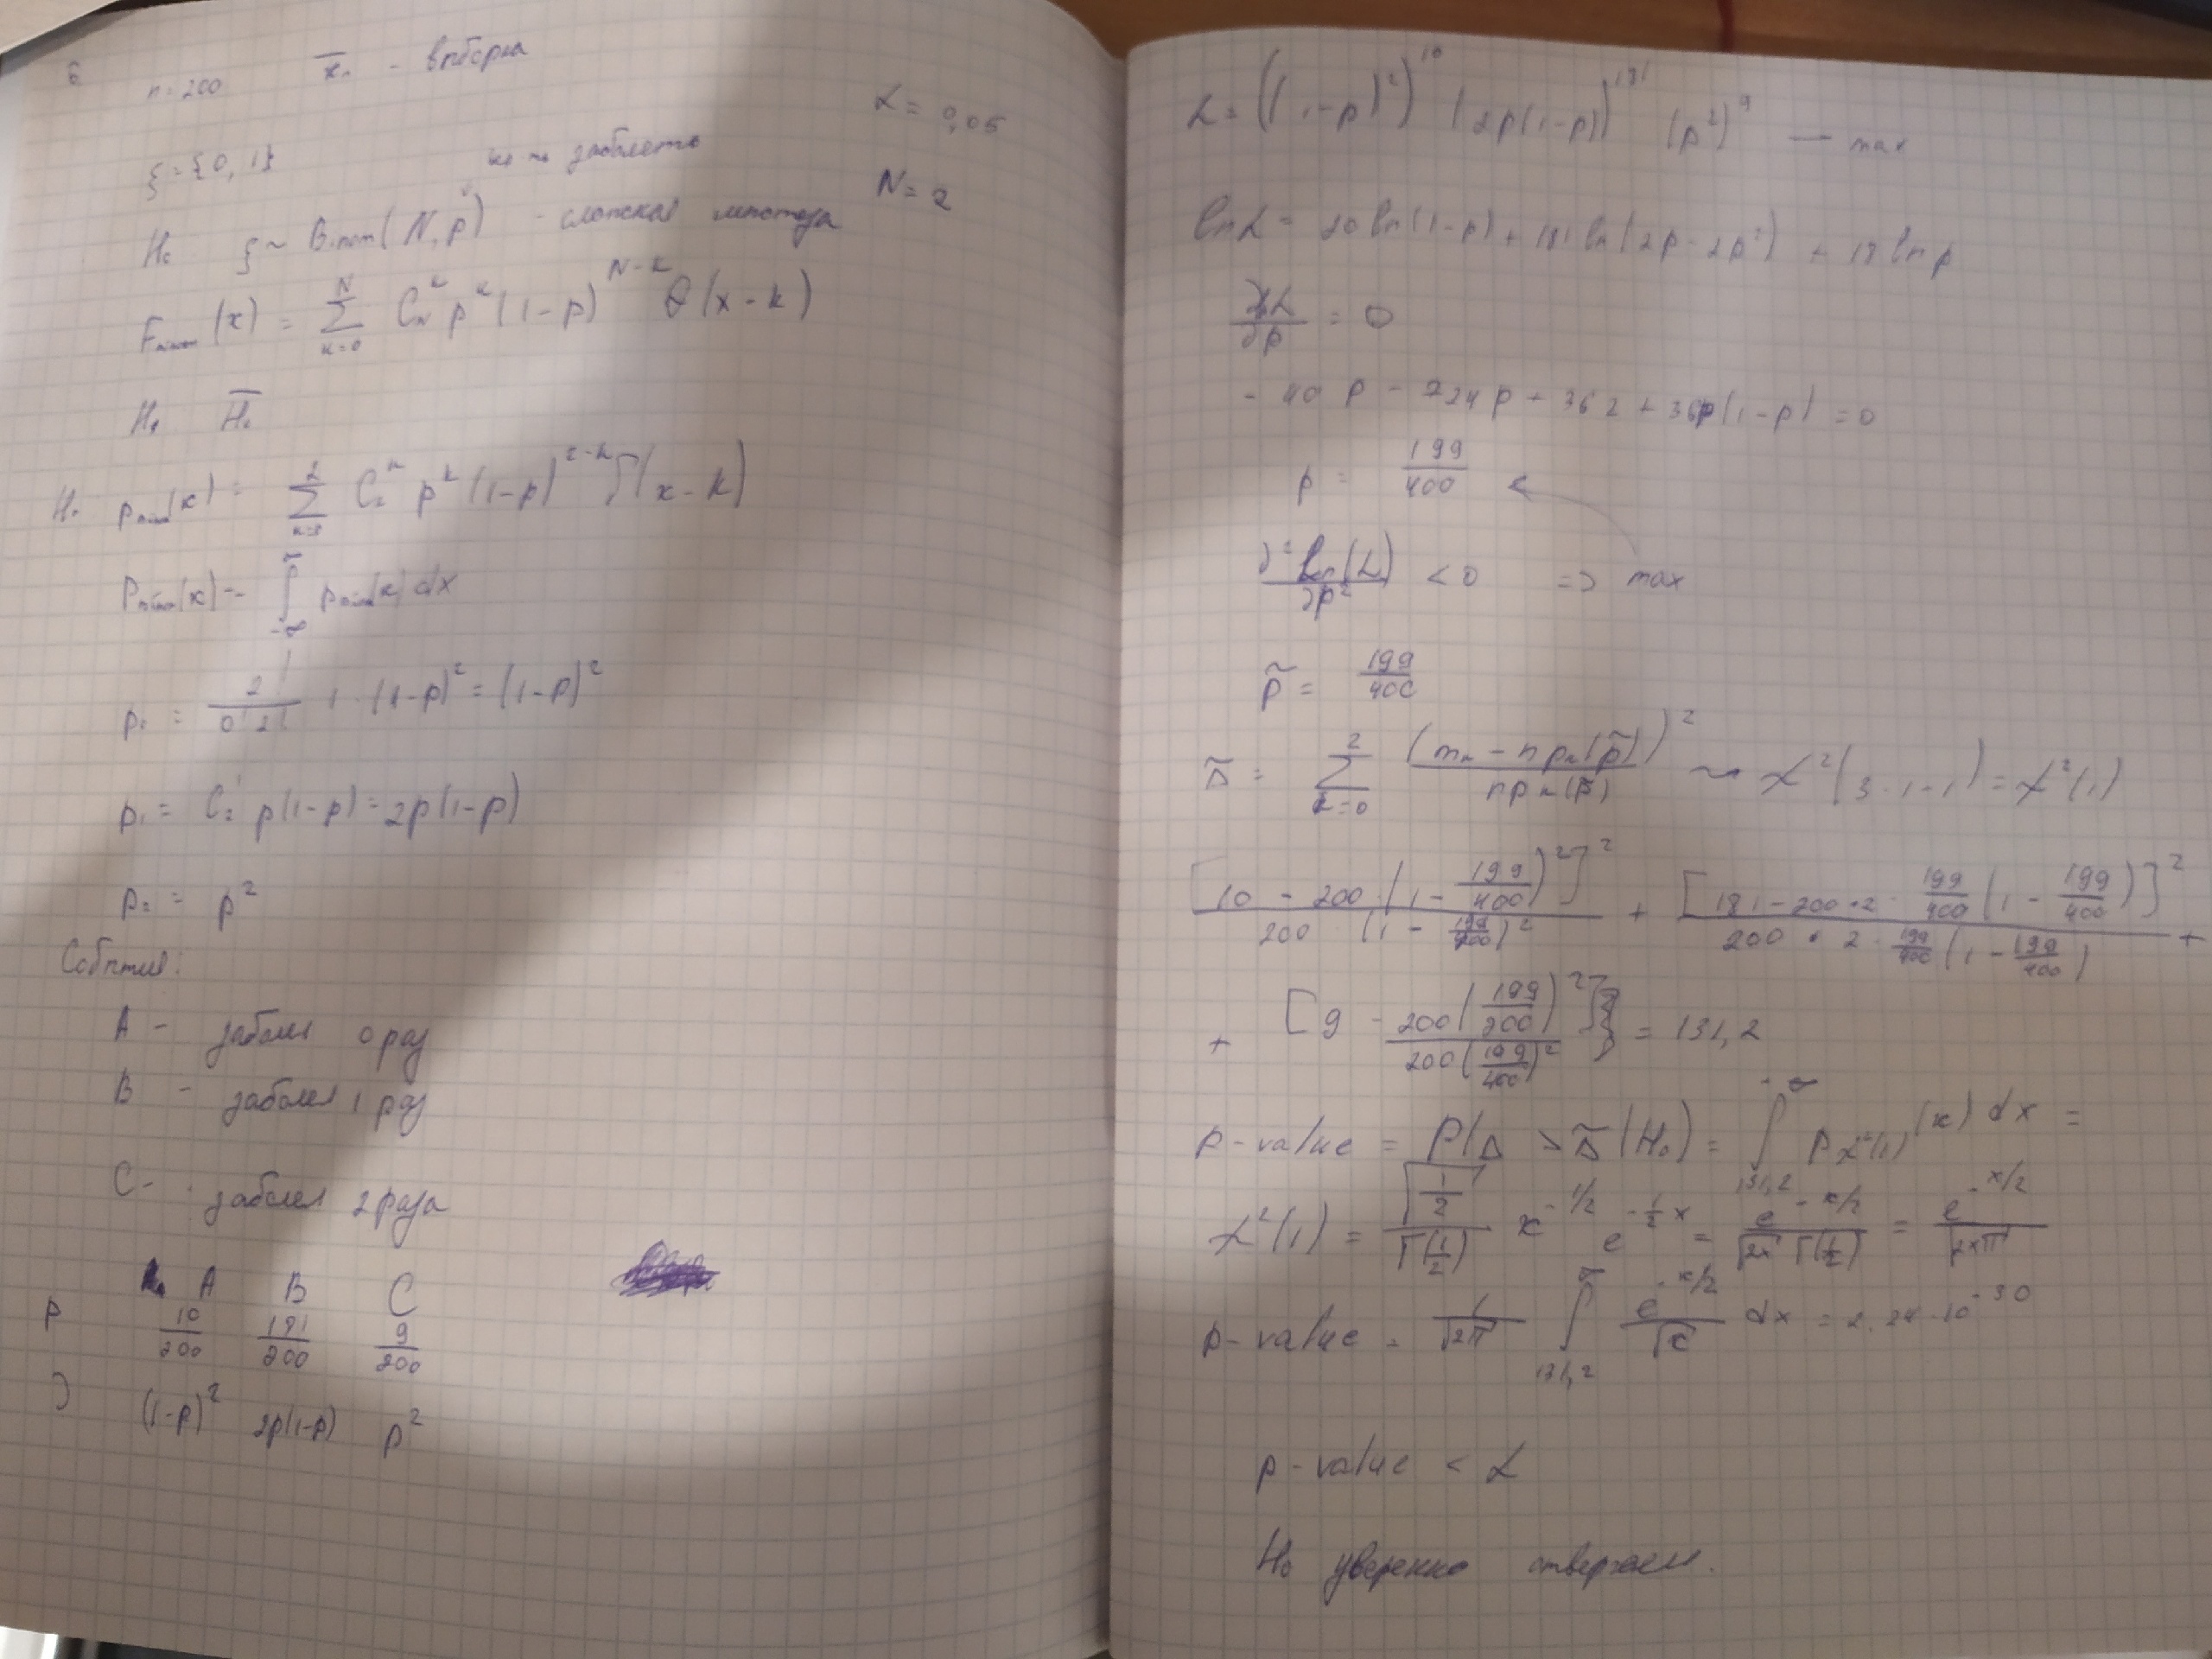 6
n = 200   x̄ₙ - выборка
α = 0,05
ξ = {0, 1}   заболеть
N = 2
H₀   ξ ~ Binom(N, p) - сложная гипотеза
F (x) = ∑_{k=0}^{N} C_N^k p^k (1-p)^{N-k} θ(x-k)
H₁   H̄₀
H₀   p (x) = ∑_{k=0}^{2} C_2^k p^k (1-p)^{2-k} δ(x-k)
P (x) = ∫_{-∞}^{∞} p (x) dx
p₀ = 2!/(0! 2!) 1 · (1-p)² = (1-p)²
p₁ = C_2^1 p(1-p) = 2p(1-p)
p₂ = p²
События:
A - заболел 0 раз
B - заболел 1 раз
C - заболел 2 раза
A B C
p 10/200 181/200 9/200
(1-p)² 2p(1-p) p²
L = ((1-p)²)^10 (2p(1-p))^181 (p²)^9 — max
ln L = 20 ln(1-p) + 181 ln(2p - 2p²) + 18 ln p
∂L/∂p = 0
- 40 p - 724 p + 362 + 36p(1-p) = 0
p = 199/400 <
∂² ln(L)/∂p² < 0 => max
p̃ = 199/400
Δ̃ = ∑_{k=0}^{2} (mₖ - n pₖ(p̃))²/(n pₖ(p̃)) ~ χ²(3-1-1) = χ²(1)
[10 - 200·(1 - 199/400)²]²/(200 · (1 - 199/400)²) + [181 - 200·2· 199/400 (1 - 199/400)]²/(200 · 2 · 199/400 (1 - 199/400)) +
+ [9 - 200(199/200)²]/(200(199/400)²) = 131,2
p-value = P(Δ > Δ̃ | H₀) = ∫_{131,2}^{+∞} p_{χ²(1)}(x) dx =
χ²(1) = √(1/2)/Γ(1/2) x^{-1/2} e^{-1/2 x} = e^{-x/2}/(√(2x) Γ(1/2)) = e^{-x/2}/√(2xπ)
p-value = 1/√(2π) ∫_{131,2}^{∞} e^{-x/2}/√x dx = 2.24·10^{-30}
p-value < α
H₀ уверенно отвергаем.